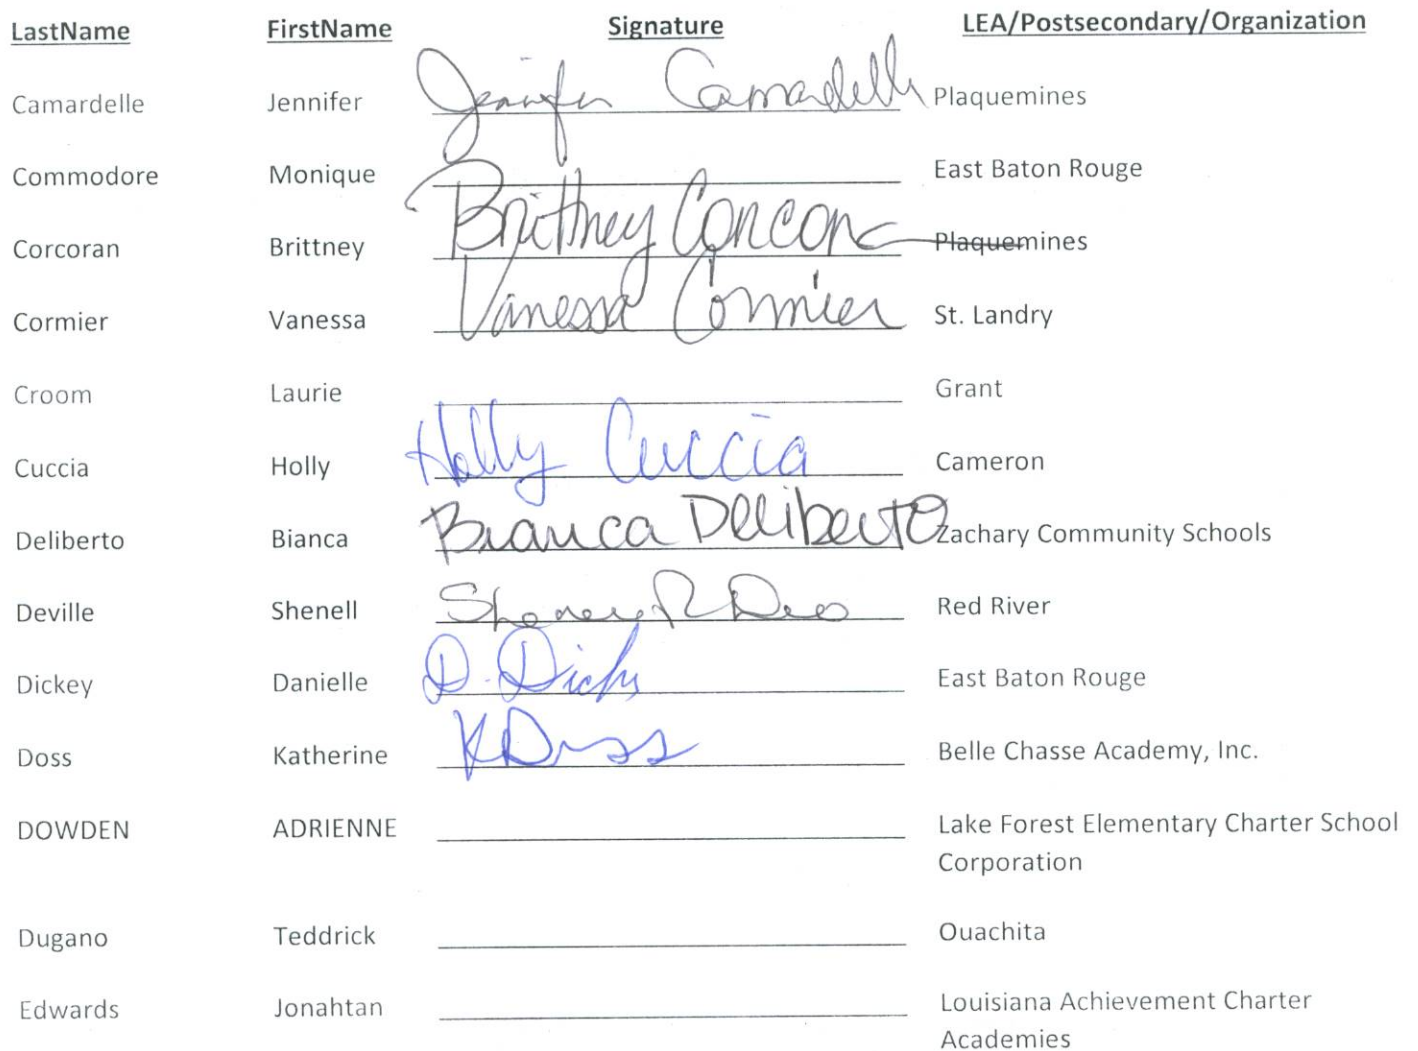 LastName FirstName Signature LEA/Postsecondary/Organization
Camardelle Jennifer Jennifer Camardelle Plaquemines
Commodore Monique East Baton Rouge
Corcoran Brittney Brittney Corcoran Plaquemines
Cormier Vanessa Vanessa Cormier St. Landry
Croom Laurie Grant
Cuccia Holly Holly Cuccia Cameron
Deliberto Bianca Bianca Deliberto Zachary Community Schools
Deville Shenell Red River
Dickey Danielle D. Dickey East Baton Rouge
Doss Katherine K Doss Belle Chasse Academy, Inc.
DOWDEN ADRIENNE Lake Forest Elementary Charter School
Corporation
Dugano Teddrick Ouachita
Edwards Jonahtan Louisiana Achievement Charter
Academies